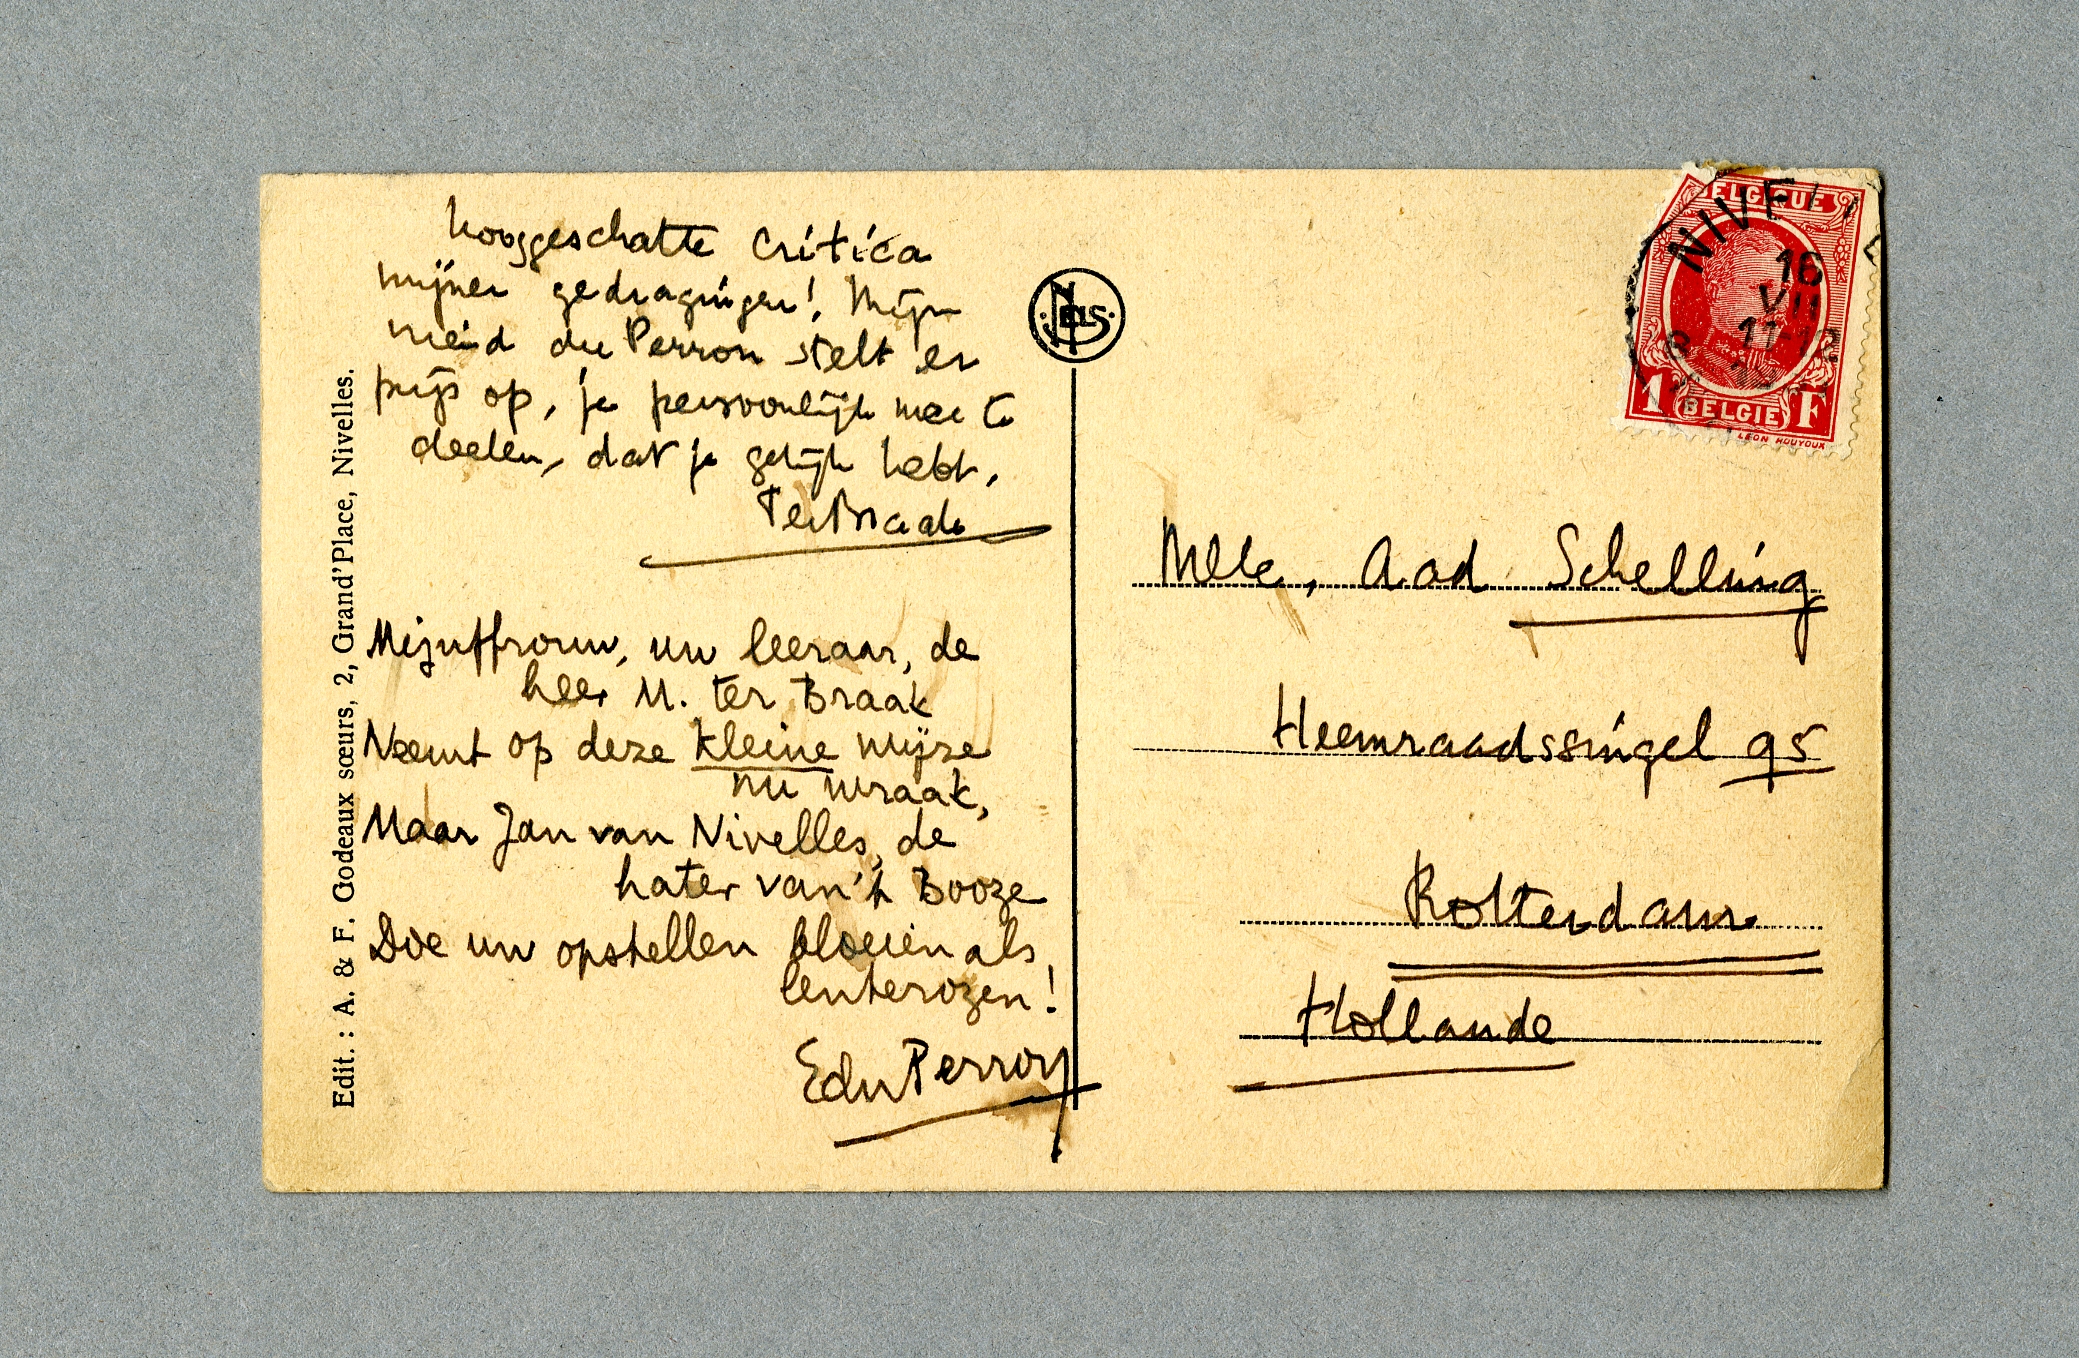 hooggeschatte critica
mijner gedragingen! Mijn
vriend du Perron stelt er
prijs op, je persoonlijk mee te
deelen, dat je gelijk hebt.
Ter Braak
Mejuffrouw, uw leeraar, de
heer M. ter Braak
Neemt op deze kleine wijze
nu wraak,
Maar Jan van Nivelles, de
hater van 't Booze
Doe uw opstellen bloeien als
lenterozen!
EduPerron
Edit. : A. & F. Godeaux sœurs, 2, Grand'Place, Nivelles.
NELS
BELGIQUE
NIVEL
16
VII
11-12
1 BELGIE F
LEON HOUYOUX
Mlle, Aad Schelling
Heemraadssingel 95
Rotterdam
Hollande